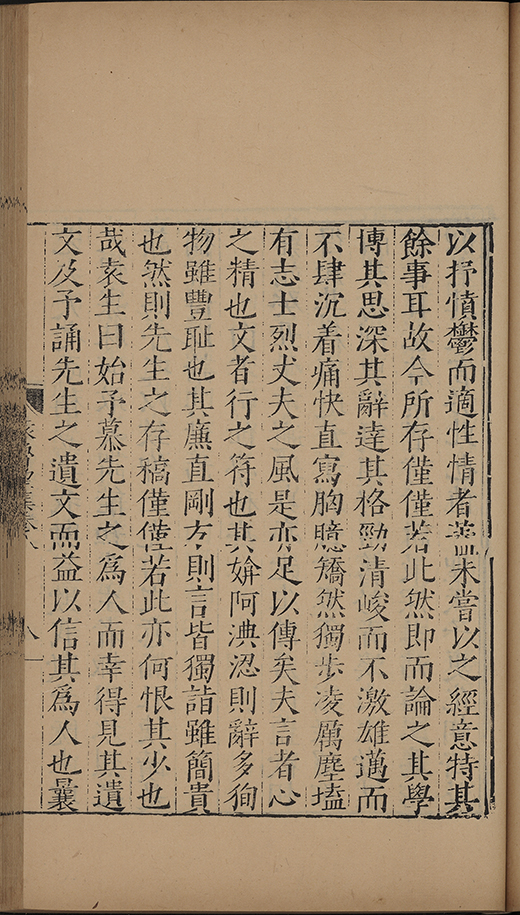 以抒憤鬱而適性情者蓋未嘗以之經意特其
餘事耳故今所存僅僅若此然即而論之其學
博其思深其辭達其格勁清峻而不激雄邁而
不肆沉着痛快直寫胸臆矯然獨步凌厲塵壒
有志士烈丈夫之風是亦足以傳矣夫言者心
之精也文者行之符也其媕阿淟涊則辭多徇
物雖豐耻也其廉直剛方則言皆獨詣雖簡貴
也然則先生之存稿僅僅若此亦何恨其少也
哉袁生曰始予慕先生之為人而幸得見其遺
文及予誦先生之遺文而益以信其為人也曩